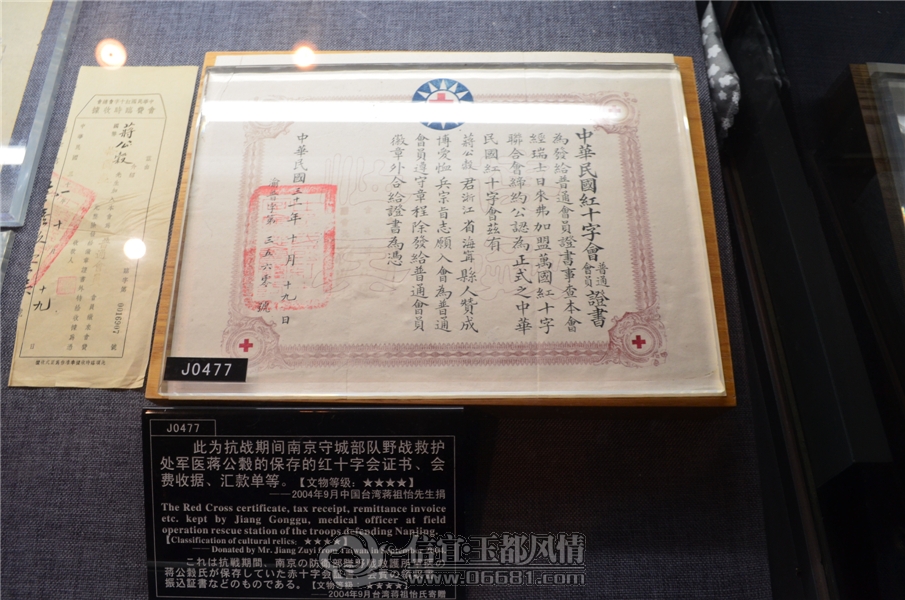 中華民國紅十字會普通會員證書
為發給普通會員證書事查本會
經瑞士日來弗加盟萬國紅十字
聯合會締約公認為正式之中華
民國紅十字會茲有
蔣公穀君浙江省海寧縣人贊成
博愛恤兵宗旨志願入會為普通
會員遵守章程除發給普通會員
徽章外合給證書為憑
中華民國 年十月十九日
第三五六零號
蔣公穀
中華民國
十九
0016907
J0477
J0477
此为抗战期间南京守城部队野战救护
处军医蒋公穀的保存的红十字会证书、会
费收据、汇款单等。【文物等级：★★★★】
——2004年9月中国台湾蒋祖怡先生捐
The Red Cross certificate, tax receipt, remittance invoice
etc. kept by Jiang Gonggu, medical officer at field
operation rescue station of the troops defending Nanjing.
【Classification of cultural relics: ★★★★】
——Donated by Mr. Jiang Zuyi from Taiwan in September
これは抗戦期間、南京の防
蒋公穀氏が保存していた赤十字会
振込証書などのものである。【文物等级：★★★★】
2004年9月台湾蒋祖怡氏寄贈
信宜·玉都风情
www.06681.com